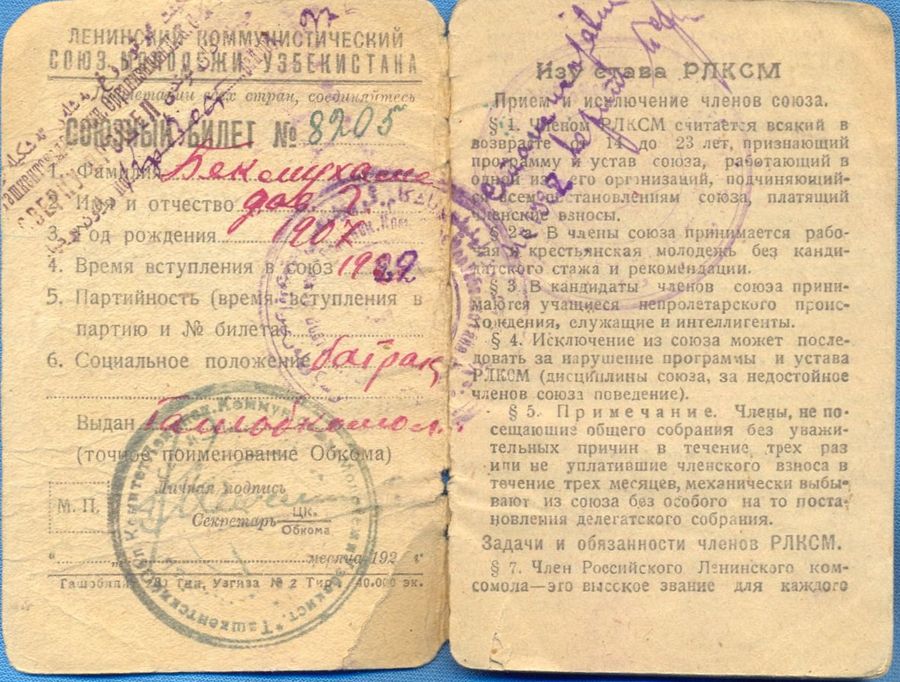 ЛЕНИНСКИЙ КОММУНИСТИЧЕСКИЙ
СОЮЗ МОЛОДЕЖИ УЗБЕКИСТАНА
Пролетарии всех стран, соединяйтесь
СОЮЗНЫЙ БИЛЕТ № 8205
1. Фамилия Бекмухаме
2. Имя и отчество дов
3. Год рождения 1907
4. Время вступления в союз 1922
5. Партийность (время вступления в
партию и № билета)
6. Социальное положение батрак
Выдан Ташобкомол
(точное поименование Обкома)
М. П.
Личная подпись
Секретарь ЦК. Обкома
месяца 192 г
№ 2
Изу става РЛКСМ
Прием и исключение членов союза.
§ 1. Членом РЛКСМ считается всякий в
возрасте от 14 до 23 лет, признающий
программу и устав союза, работающий в
одной из его организаций, подчиняющий-
ся всем постановлениям союза, платящий
членские взносы.
§ 2 а. В члены союза принимается рабо-
чая и крестьянская молодежь без канди-
датского стажа и рекомендации.
§ 3. В кандидаты членов союза прини-
маются учащиеся непролетарского проис-
хождения, служащие и интеллигенты.
§ 4. Исключение из союза может после-
довать за нарушение программы и устава
РЛКСМ (дисциплины союза, за недостойное
членов союза поведение).
§ 5. Примечание. Члены, не по-
сещающие общего собрания без уважи-
тельных причин в течение трех раз
или не уплатившие членского взноса в
течение трех месяцев, механически выбы-
вают из союза без особого на то поста-
новления делегатского собрания.
Задачи и обязанности членов РЛКСМ.
§ 7. Член Российского Ленинского ком-
сомола—это высское звание для каждого